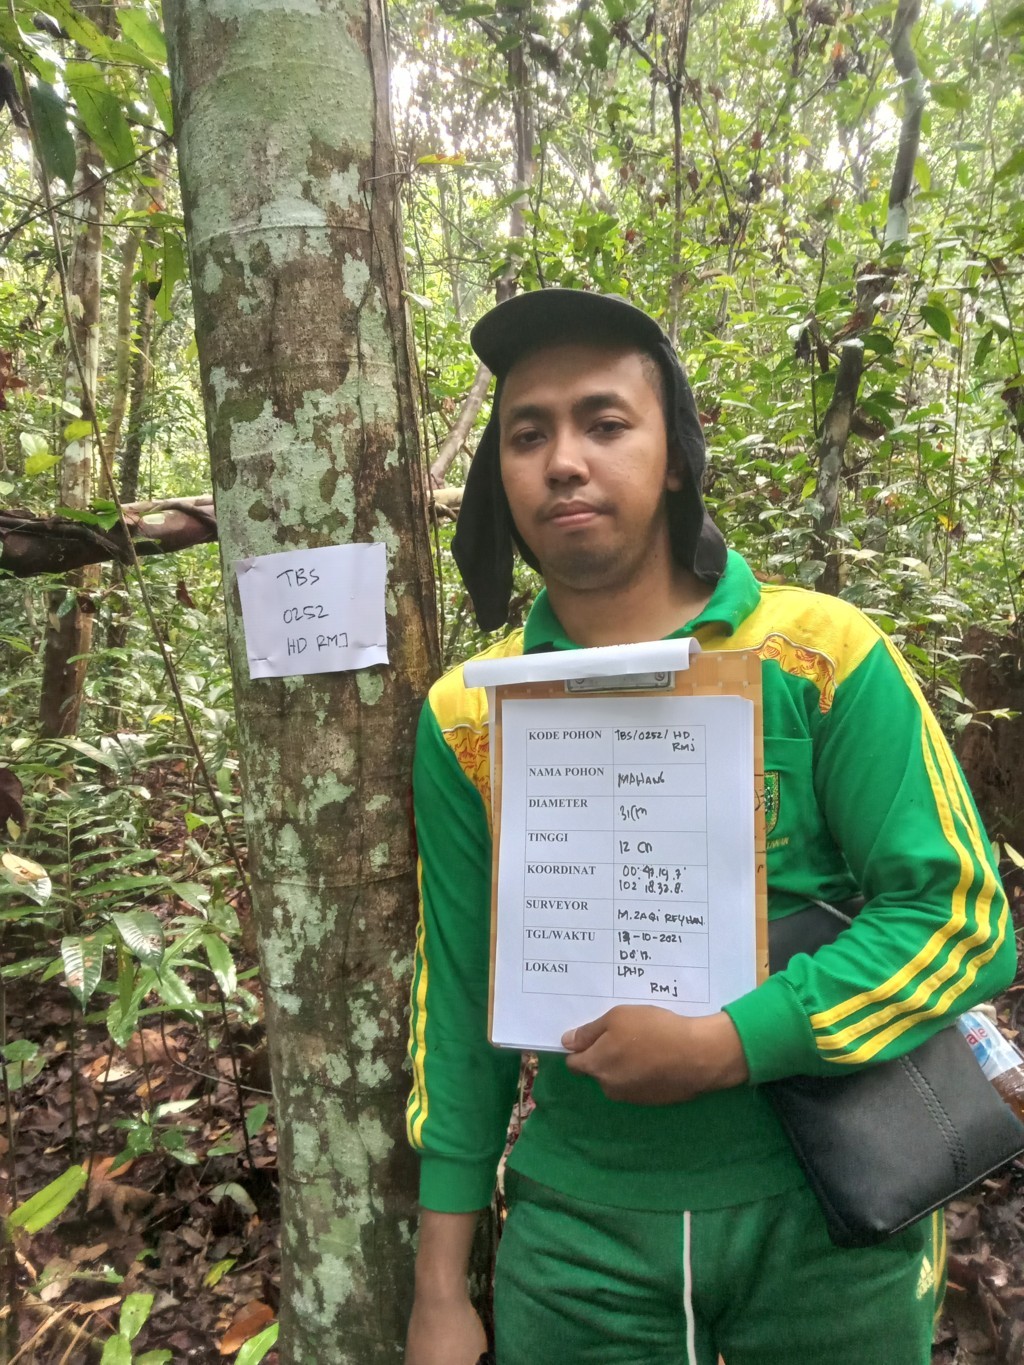 TBS
0252
HD RMJ
KODE POHON TBS/0252/ HD.
RMJ
NAMA POHON MAHANG
DIAMETER 31CM
TINGGI 12 CM
KOORDINAT 00°
102° 18.32.8.
SURVEYOR M. ZAQI REYHAN.
TGL/WAKTU -10-2021
LOKASI LPHD
RMJ